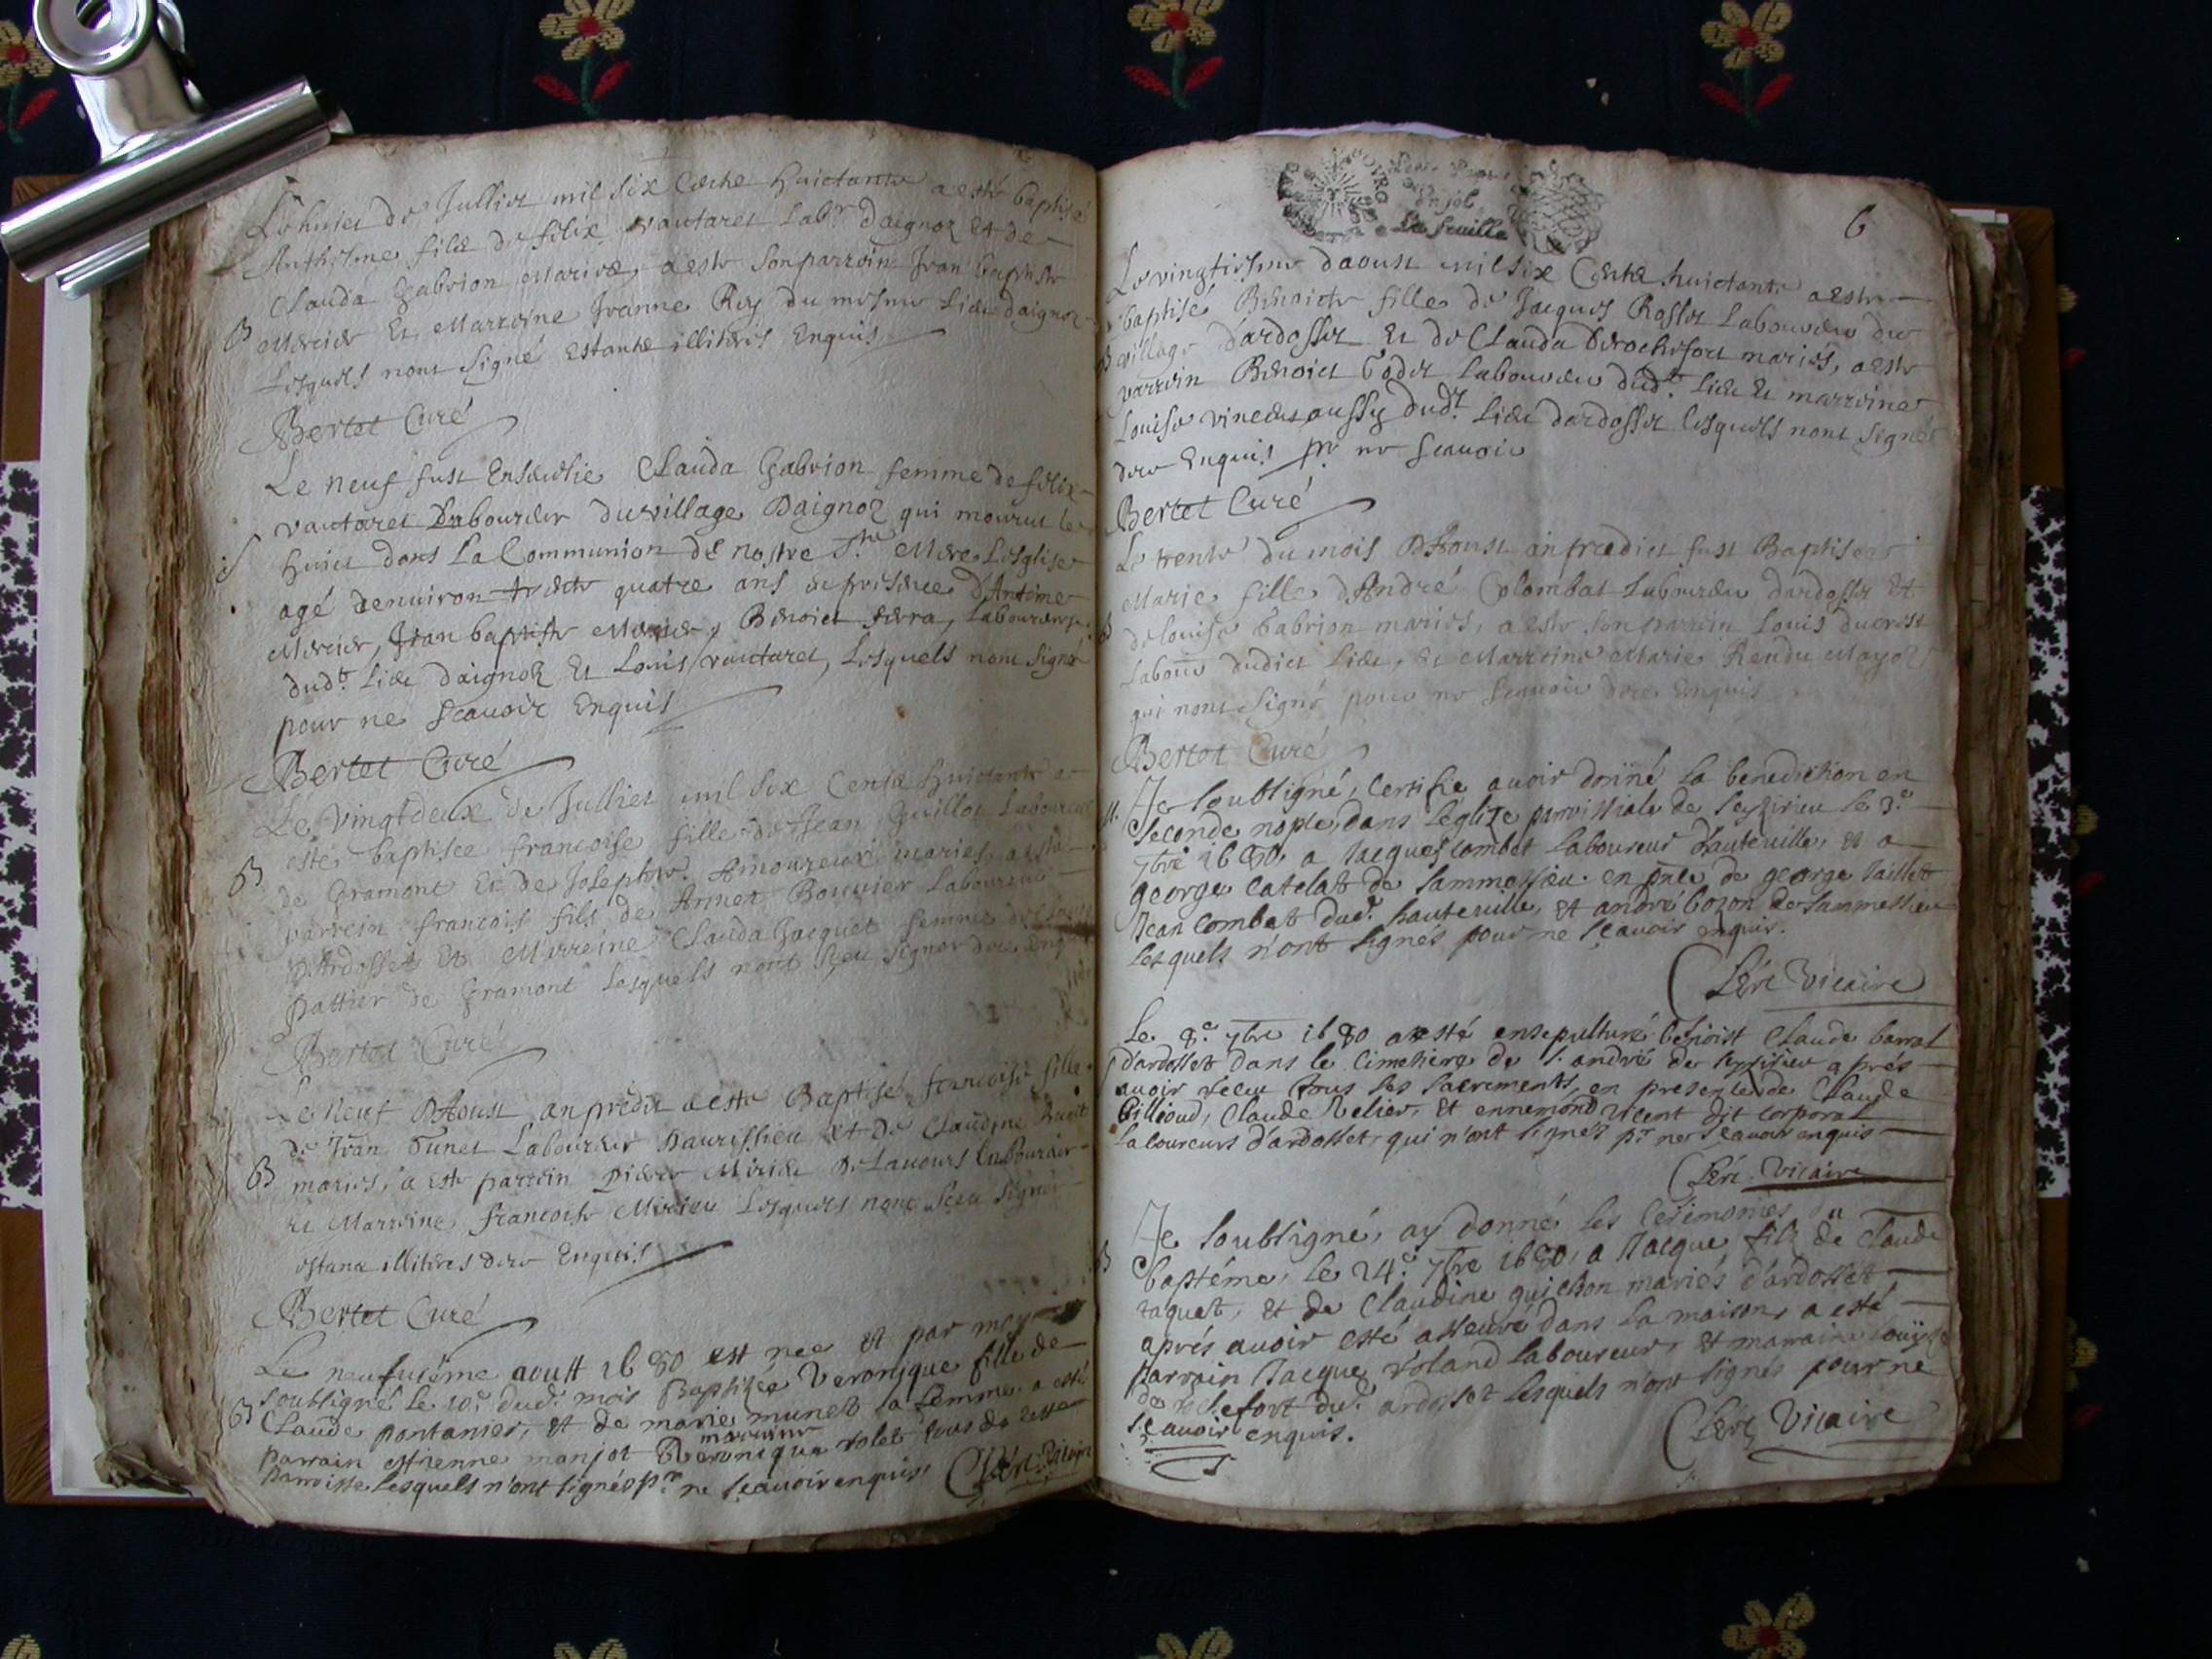 Le huict de Julliet mil six Cents huictante a esté baptisé
Anthelme filz de felix vautaret lab.r daignoz et de
Clauda Gabrion Mariez, a esté son parrein Jean baptiste
B Mercier Et Marreine Jeanne Rey du mesme lieu daignoz
Lesquels nont signé estants illiteres Enquis
Bertet Curé
Le neuf fust Ensevelie Clauda Gabrion femme de felix
vautaret Laboureur du village Daignoz qui mourut le
S huict dans La Communion de nostre S.te Mere Lesglise
agé denuiron quatre ans en presence D'Antoine
Mercier, Jean baptiste Mercier, Benoict Laboureurs
dud.t lieu daignoz Et Louis vautaret, Lesquels nont signé
pour ne scauoir Enquis
Bertet Curé
Le vingtdeux de Julliet mil six Cents huictante a
esté baptisée francoise fille de Jean Guillot Laboureur
B de Gramont Et de Josephte Amoureux mariez, a esté
parrein francois fils de Annet Bouuier Laboureur
D'Ardosset Et Marreine Clauda Jacquet femme de
pattier de Gramont Lesquels nont sceu signer de ce enquis
Bertet Curé
Le Neuf D'Aoust an predit a esté Baptisé francoise fille
de Jean Laboureur Daurissieu et de Claudine
B mariés, a esté parrein Pierre D. Lauours Labourer
et Marreine francoise Lesquels nont sceu signer
estant illiteres de ce Enquis
Bertet Curé
Le neufuiéme aoust 1680 est nee et par moy
soubsigné le 10.e dud.t mois Baptisée Veronique fille de
B Claude pontanier, et de marie munet sa femme. a esté
marraine
parrain estienne monjot Veronique rolet tous de cette
parroisse Lesquels n'ont signés p.r ne scauoir enquis. Vicaire
La feuille
6
Le vingtiesme daoust mil six Cents huictante a esté
baptisé Benoicte fille de Jacques Rosset Laboureur du
B village d'ardosset Et de Clauda Derochefort mariés, a esté
parrein Benoict Godet Laboureur dud.t lieu Et marreine
Louise aussy dud.t lieu dardosset lesquels nont signés
de ce Enquis p.r ne scauoir
Bertet Curé
Le trente du mois D'Aoust an predict fust Baptisée
Marie fille D'André Colombat Laboureur dardosset Et
B de louise Gabrion mariés, a esté son parrein Louis ducrest
labour dudict lieu, Et Marreine Marie Rendu
qui nont signé pour ne scauoir de ce Enquis
Bertet Curé
Je soubsigné, Certifie auoir donné la benediction en
M. Seconde nopce, dans l'eglize parroissiale de seyzirieu le 3.e
7bre 1680, a Jacques Combet laboureur d'hauteuille, et a
george Catelat de sammessieu. en pnce de george Jaillet
Jean Combet dud.t hauteuille, et andré bozon de sammessieu
lesquels n'ont signés pour ne scauoir enquis.
Vicaire
Le 8.e 7bre 1680 a esté ensepulturé benoist Claude barral
S d'ardosset dans le Cimetiere de S. andré de seyzirieu aprés
auoir receu tous les sacrements, en presence de Claude
billioud, Claude Relier, et ennemond vicent dit corporal
laboureurs d'ardosset, qui n'ont signez p.r ne scauoir enquis
Vicaire
Je soubsigné, ay donné les Cerimonies du
B baptéme, le 24.e 7bre 1680, a Jacque filz de Claude
taquet, et de Claudine guichon mariés d'ardosset
aprés auoir esté asseuré dans la maison, a esté
parrain Jacque roland laboureur, et marraine Louyse
de rochefort dud.t ardosset lesquels n'ont signés pour ne
scauoir enquis.
Vicaire